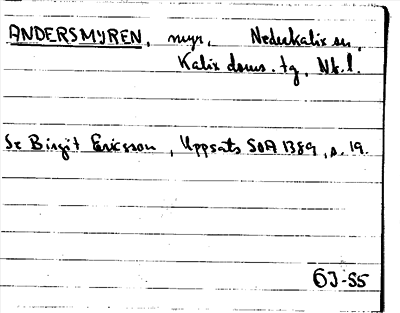 ANDERSMYREN, myr, Nederkalix sn,
Kalix doms. tg, Nb. l.
Se Birgit Ericsson, Uppsats SOA 1389, s. 19.
ÖJ-55